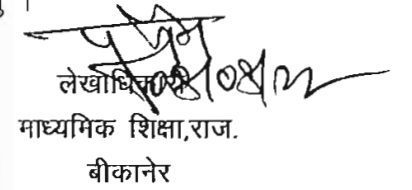 लेखाधिकारी
माध्यमिक शिक्षा,राज.
बीकानेर